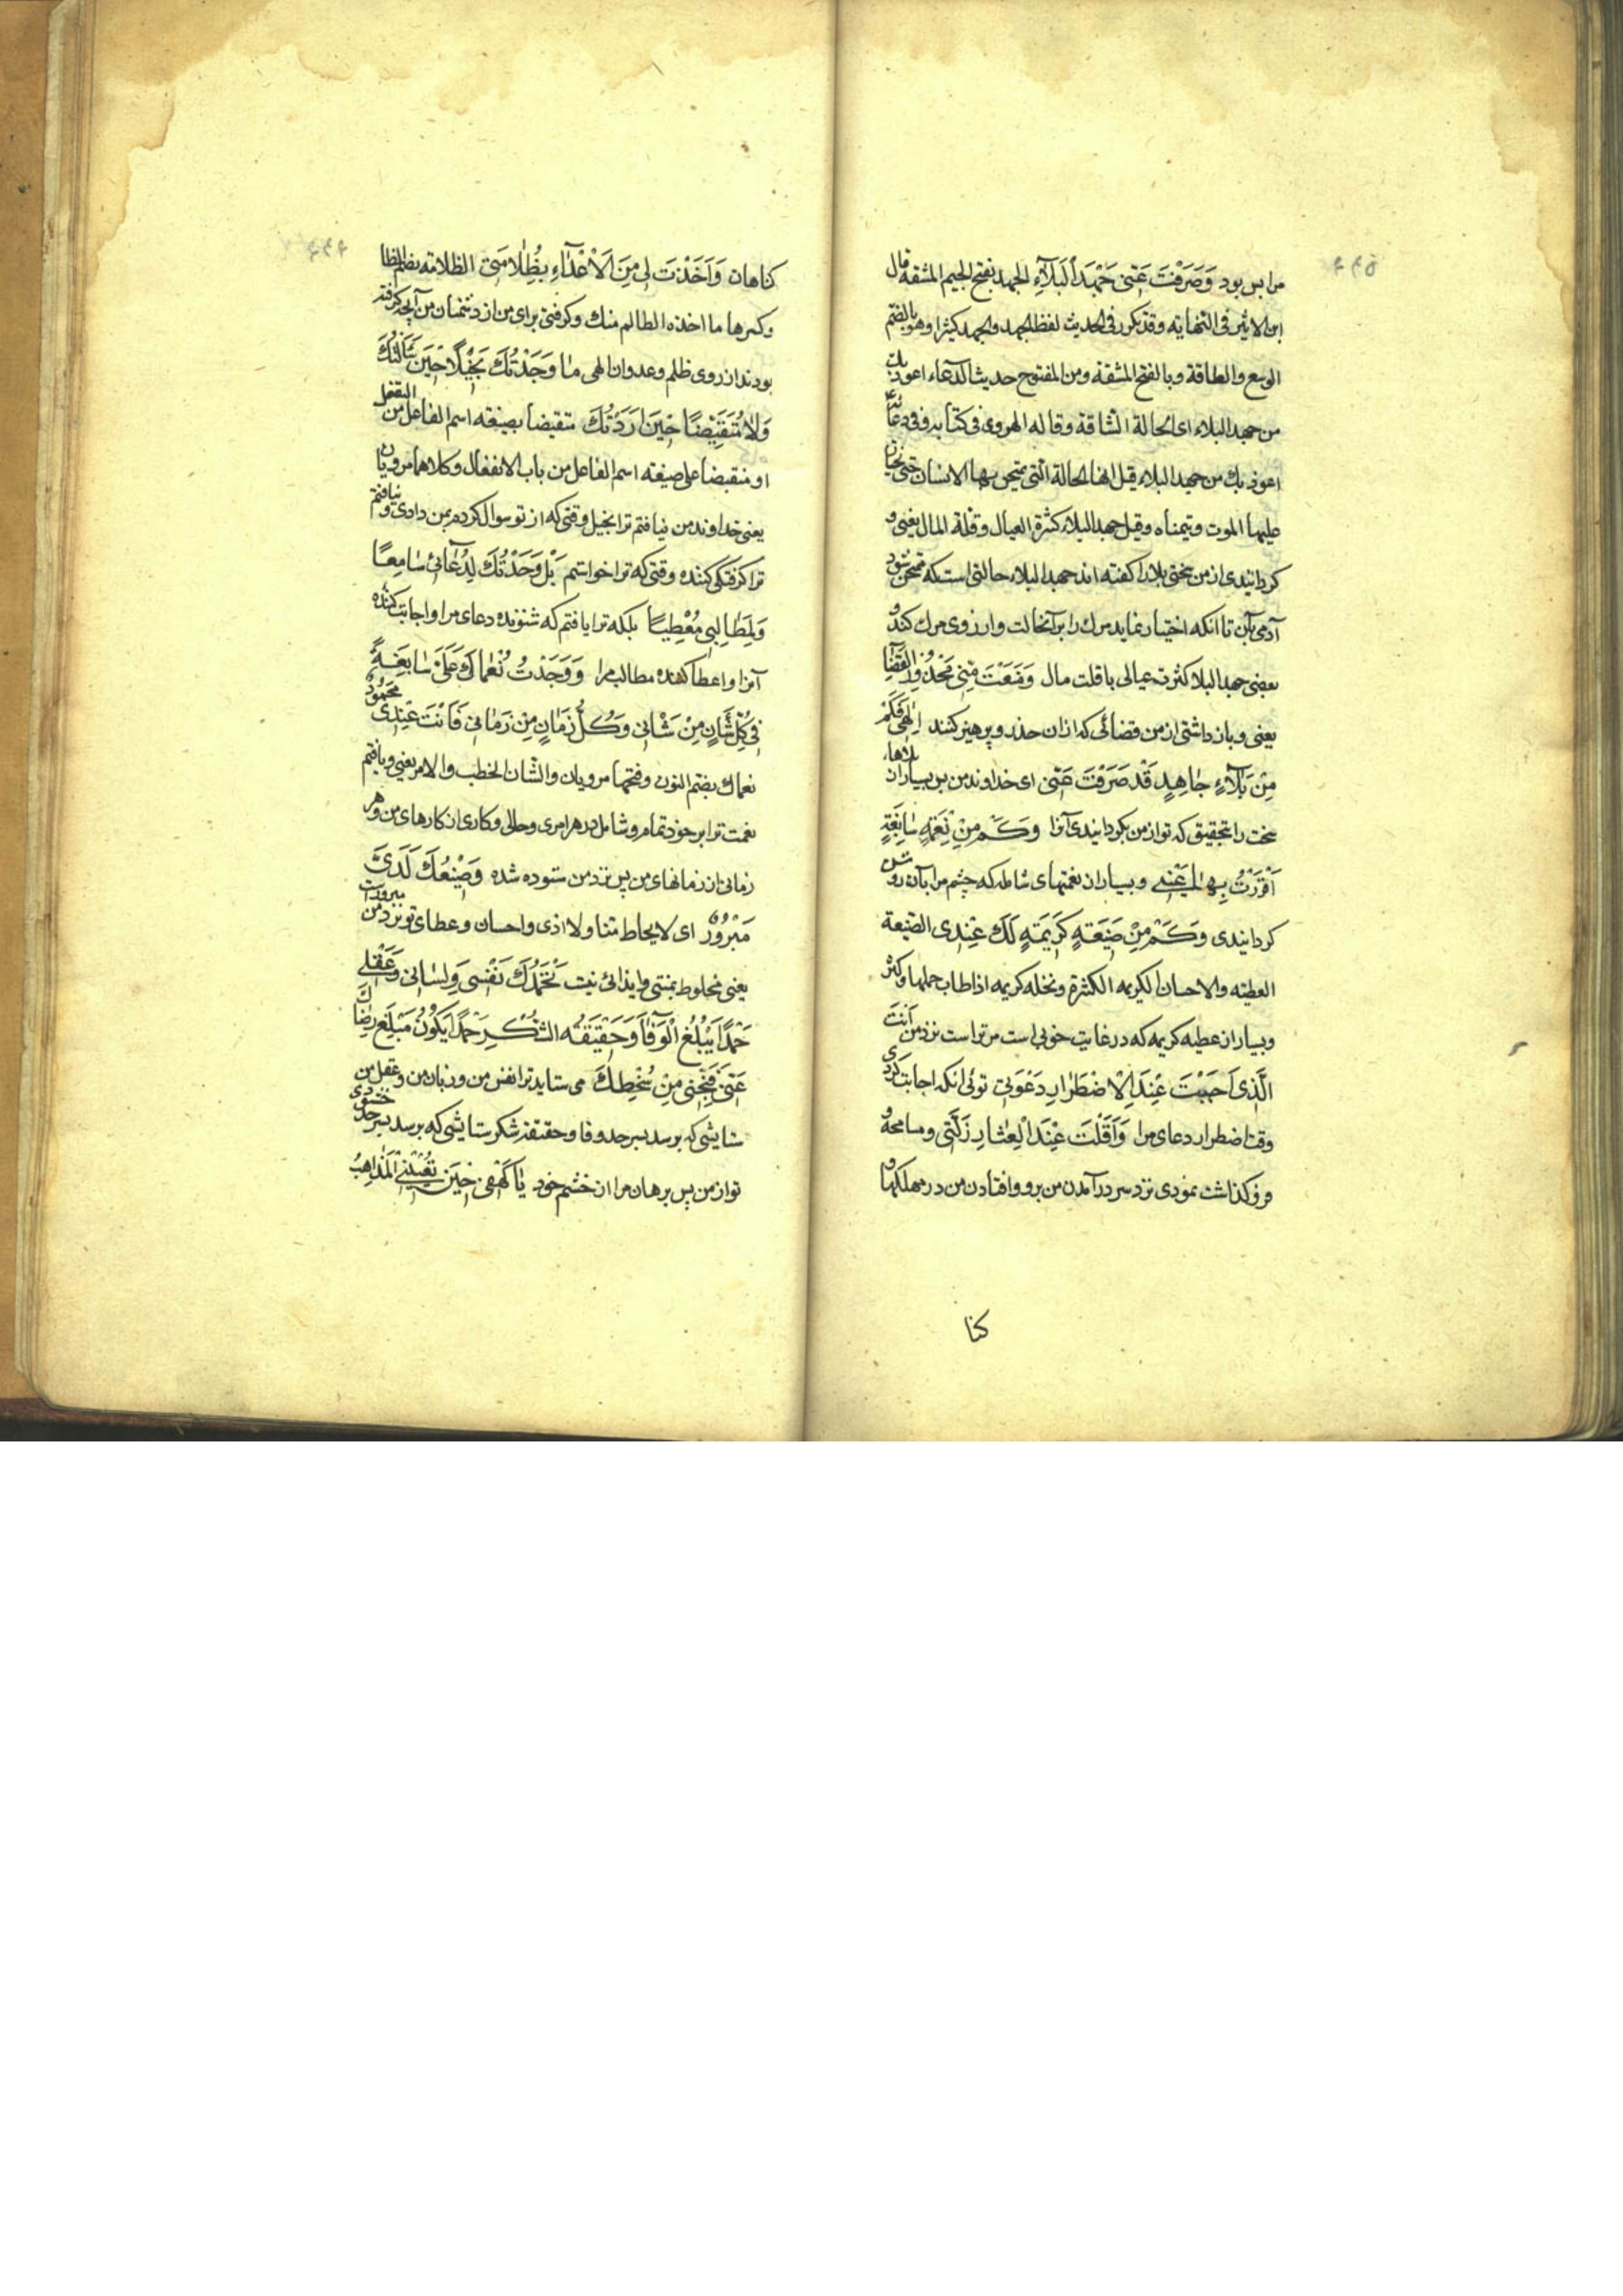 مرا بس بود وَصَرَفْتَ عَنّی جَهْدَ الْبَلاۤءِ الجهد بفتح الجیم المشقه قال
ابن الاثیر فی النهایه و قد تکرر فی الحدیث لفظ الجهد والجهد کثیرا وهو بالضم
الوسع والطاقة و بالفتح المشقه ومن المفتوح حدیث الدعاء اعوذ بک
من جهد البلاء ای الحالة الشاقه وقاله الهروی فی کتابه وفی دعائه
اعوذ بک من جهد البلاء قیل انها الحالة التی یمتحن بها الانسان حتی یختار
علیها الموت ویتمناه وقیل جهد البلاء کثرة العیال وقلة المال یعنی و
کردانیدی از من سختی بلا را کفته اند جهد البلاء حالتی است که ممتحن شود
آدمی بآن تا انکه اختیار نماید مرک را بر آنحالت وارزوی مرک کند و
بعضی جهد البلا کثرت عیالی با قلت مال وَمَنَعْتَ مِنّی مَحْذُورَ الْقَضٰاۤءِ
یعنی و باز داشتی از من قضائی که ازان حذر و پرهیز کنند اِلٰهی فَکَمْ
مِنْ بَلاۤءٍ جٰاهِدٍ قَدْ صَرَفْتَ عَنّی ای خداوند من پس بسیار از بلاهاء
سخت را بتحقیق که تو از من بکردانیدی آنرا وَکَمْ مِنْ نِعْمَةٍ سٰابِغَةٍ
اَقْرَرْتَ بِهٰا عَیْنی و بسیار از نعمتهای شامله که چشم مرا بآن روشن
کردانیدی وَکَمْ مِنْ صَنیعَةٍ کَریمَةٍ لَکَ عِنْدی الصنیعة
العطیه والاحسان الکریمه الکثرة ونخله کریمه اذا طاب حملها وکثر
و بسیار از عطیه کریمه که در غایت خوبی است مر ترا است نزد من اَنْتَ
الَّذی اَجَبْتَ عِنْدَ الْاِضْطِرٰارِ دَعْوَتی توئی انکه اجابت کردی
وقت اضطرار دعای مرا وَاَقَلْتَ عِنْدَ الْعِثٰارِ زَلَّتی و مسامحه و
فرو کذاشت نمودی نزد سر در آمدن من برو وافتادن من در مهلکها و
کنا
کناهان وَاَخَذْتَ لی مِنَ الْاَعْدٰاۤءِ بِظُلٰامَتی الظلامه بضم الظا
وکسرها ما اخذه الظالم منک و کرفتی برای من از دشمنان من آنچه کرفته
بودند از روی ظلم وعدوان الهی مٰا وَجَدْتُکَ بَخیلًا حینَ سَاَلْتُکَ
وَلٰا مُتَقَبِّضًا حینَ اَرَدْتُکَ متقبضا بصیغه اسم الفاعل من التفعل
او منقبضا علی صیغه اسم الفاعل من باب الانفعال وکلاهما مرویان
یعنی خداوند من نیافتم ترا بخیل وقتی که از تو سوال کردم بمن دادی و نیافتم
ترا کرفتکی کننده وقتی که ترا خواستم بَلْ وَجَدْتُکَ لِدُعٰائی سٰامِعًا
وَلِمَطٰالِبی مُعْطِیًا بلکه ترا یافتم که شنونده دعای مرا واجابت کننده
آنرا واعطا کننده مطالب مرا وَوَجَدْتُ نُعْمٰاکَ عَلَیَّ سٰابِغَةً
فی کُلِّ شَأْنٍ مِنْ شَأْنی وَکُلِّ زَمٰانٍ مِنْ زَمٰانی فَاَنْتَ عِنْدی مَحْمُودٌ
نعماک بضم النون وفتحها مرویان والشان الخطب والامر یعنی و یافتم
نعمت ترا بر خود تمام و شامل در هر امری و حالی و کاری از کارهای من و هر
زمانی از زمانهای من پس نزد من ستوده شده وَصَنیعُکَ لَدَیَّ
مَبْرُورٌ ای لا یخالط منا ولا اذی واحسان وعطای تو نزد من مبرور است
یعنی مخلوط بمنتی و ایذائی نیست تَحْمَدُکَ نَفْسی وَلِسٰانی وَعَقْلی
حَمْدًا یَبْلُغُ الْوَفٰاۤءَ وَحَقیقَةَ الشُّکْرِ حَمْدًا یَکُونُ مَبْلَغَ رِضٰاکَ
عَنّی فَنَجِّنی مِنْ سُخْطِکَ می ستاید ترا نفس من وزبان من وعقل من
ستایشی که برسد بسر حد وفا وحقیقت شکر ستایشی که برسد بسرحد خشنودی
تو از من پس برهان مرا از خشم خود یٰا کَهْفی حینَ تُعْیینِی الْمَذٰاهِبُ